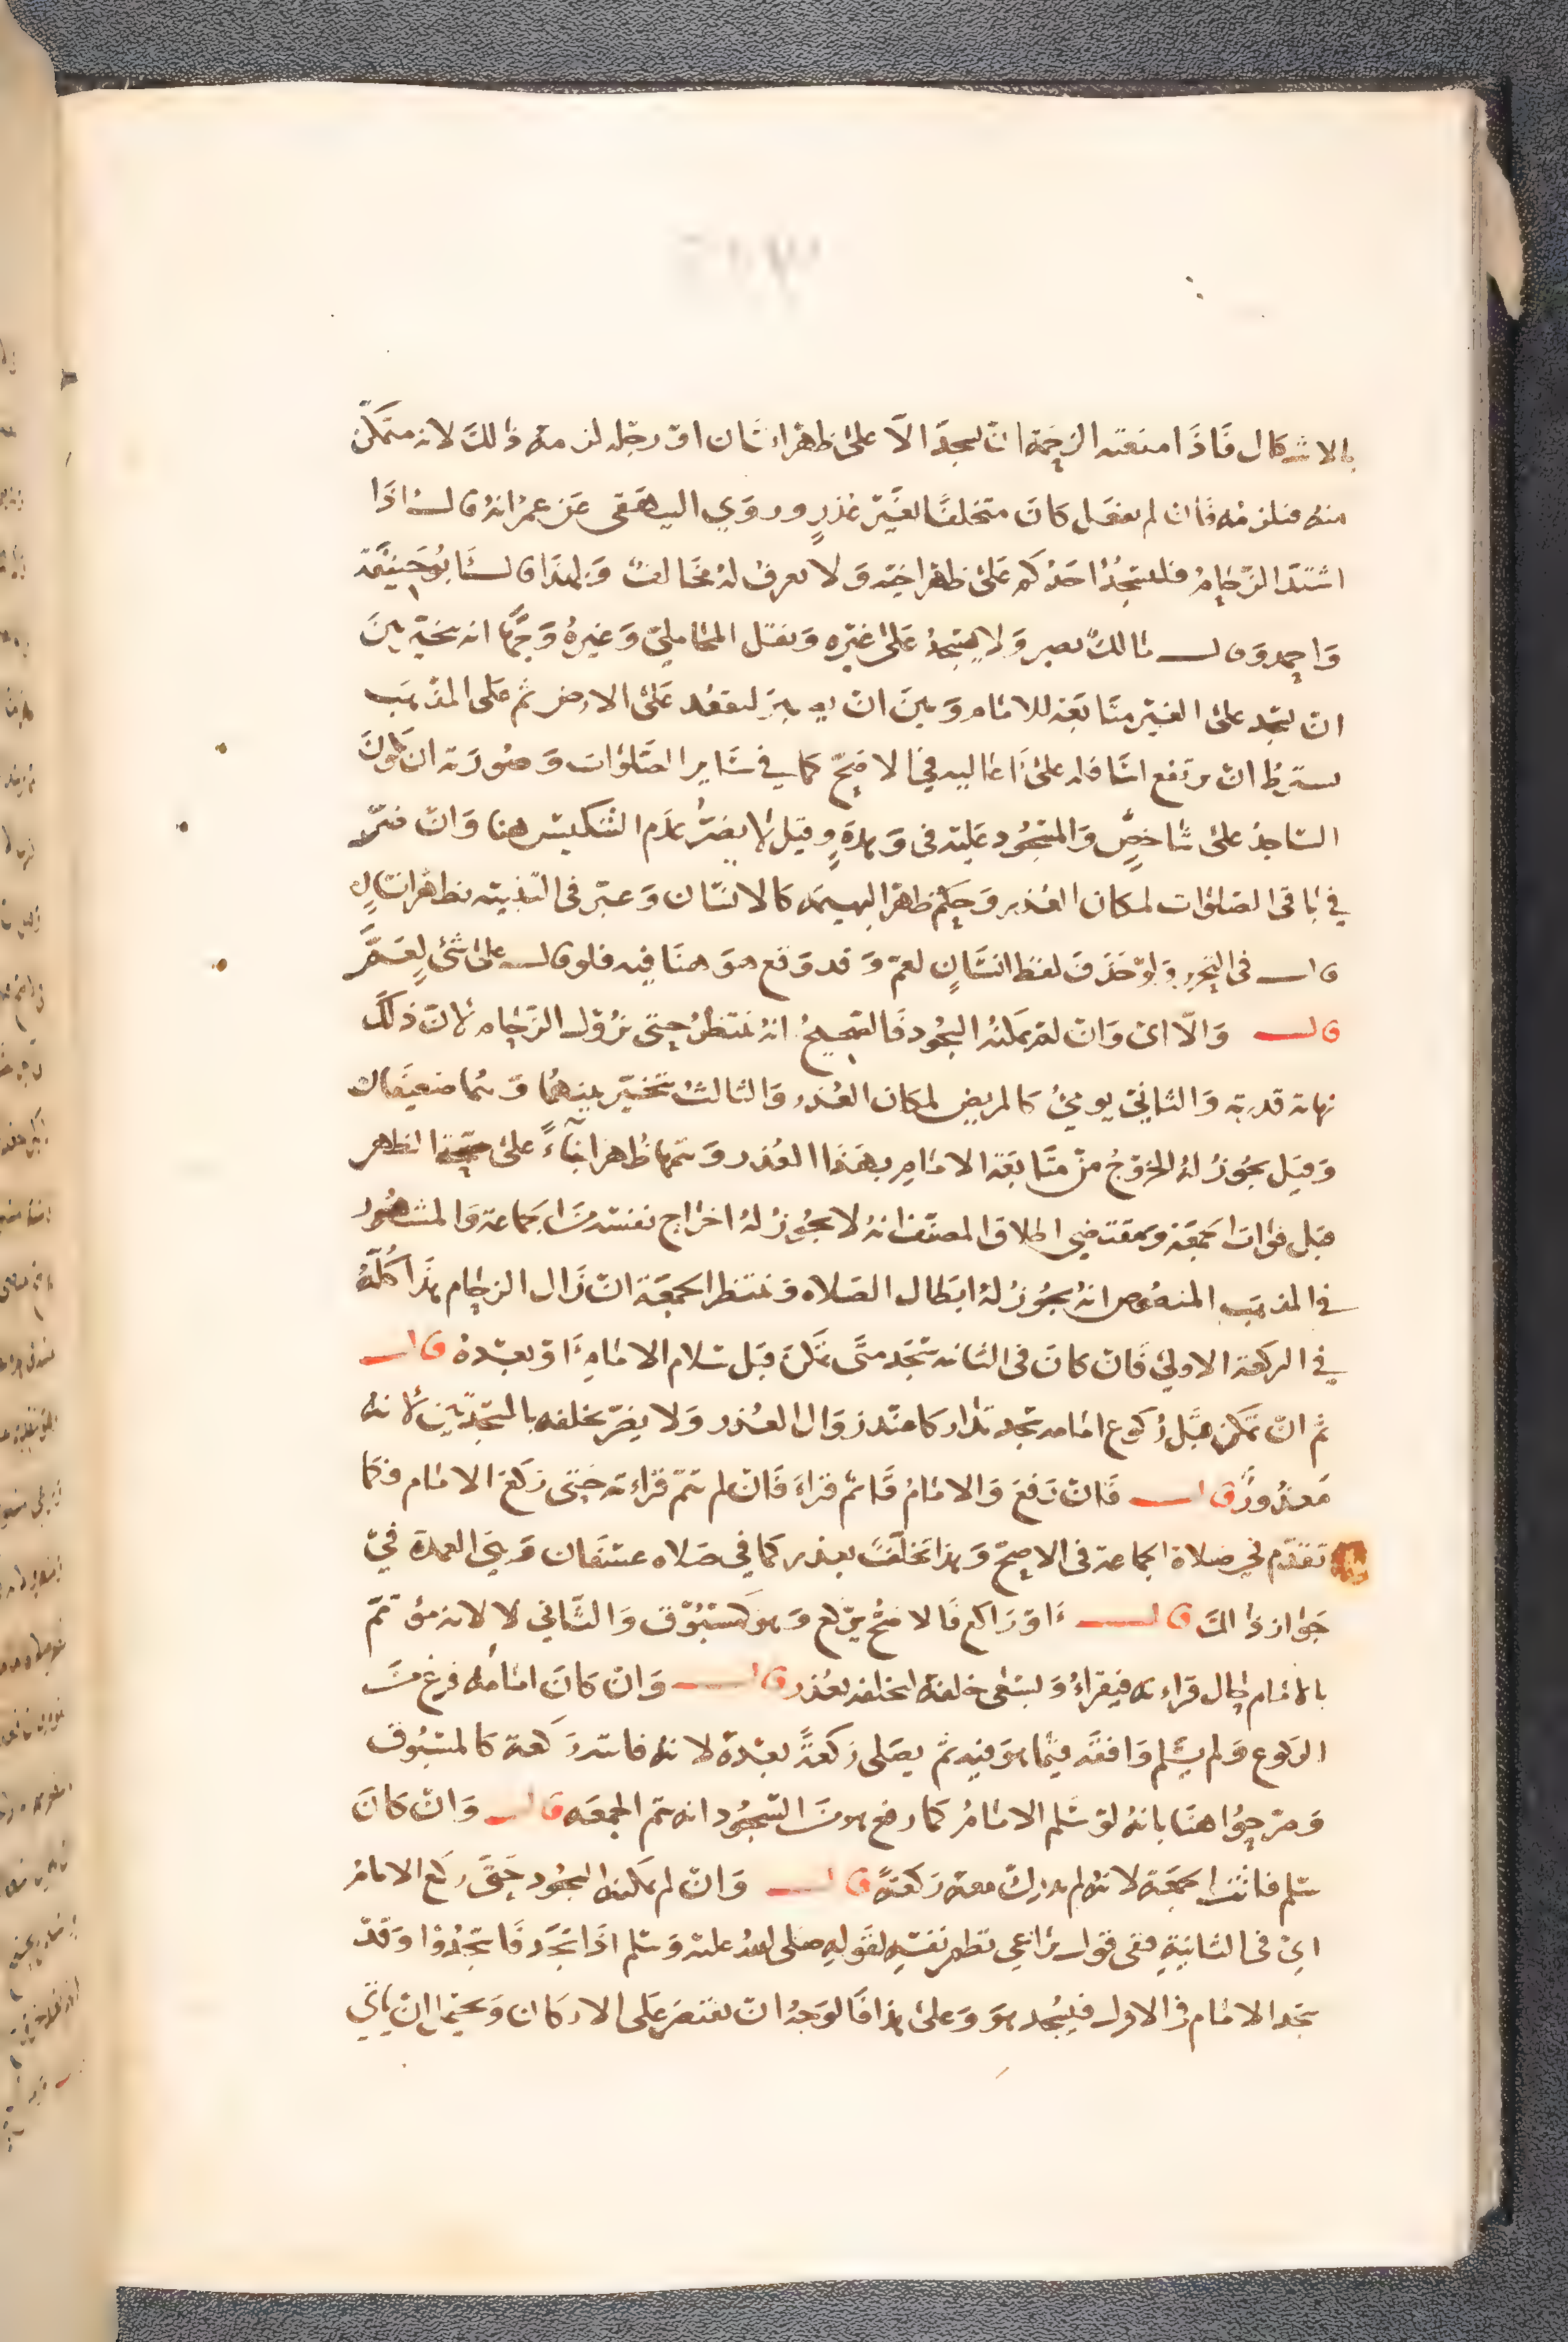 بالاشكال فاذا منعته الزحمة ان يسجد الا على ظهر انسان او رجله لزمه ذلك لانه متمكن
منه فيلزمه فان لم يفعل كان متخلفا بغير عذر وروي البيهقي عن عمر انه قال اذا
اشتد الزحام فليسجد احدكم على ظهر اخيه ولا يعرف له مخالف وبهذا قال ابو حنيفة
واحمد وقال مالك يصبر ولا يسجد على غيره ونقل المحاملي وغيره وجها انه يتخير بين
ان يسجد على الغير متابعة للامام وبين ان يصبر ليقع على الارض ثم على المذهب
يشترط ان يرتفع اسافله على اعاليه في الاصح كما في سائر الصلوات وصورته ان يكون
الساجد على شاخص والمسجود عليه في وهدة وقيل لا يضر عدم التنكيس هنا وان ضر
في باقي الصلوات لمكان العذر وحكم ظهر البهيمة كالانسان وعبر في التنبيه بظهر انسان
قال في التحرير ولو حذف لفظ انسان لعم وقد وقع هو هنا فيه فلو قال على شئ لعم
قال والا اي وان لم يمكنه السجود فالصحيح انه ينتظر حتى يزول الزحام لان ذلك
نهاية قدرته والثاني يومئ كالمريض لمكان العذر والثالث يتخير بينهما وهما ضعيفان
وقيل يجوز له الخروج من متابعة الامام بهذا العذر ويتمها ظهرا بناء على صحة الظهر
قبل فوات الجمعة ومقتضى اطلاق المصنف انه لا يجوز له اخراج نفسه من الجماعة والمشهور
في المذهب المنصوص انه يجوز له ابطال الصلاة وينتظر الجمعة ان زال الزحام هذا كله
في الركعة الاولى فان كان في الثانية سجد متى تمكن قبل سلام الامام او بعده قال
ثم ان تمكن قبل ركوع امامه سجد تداركا عند زوال العذر ولا يضر تخلفه بالسجدتين لانه
معذور قال فان رفع والامام قائم قراء فان لم تتم قراءته حتى ركع الامام فكما
تقدم في صلاة الجماعة في الاصح وهذا تخلف بعذر كما في صلاة عسفان وهي العمدة في
جواز ذلك قال او راكع فالاصح يركع وهو كمسبوق والثاني لا لانه مؤتم
بالامام حال قراءته فيقراء ويسعى خلفه لتخلفه بعذر قال وان كان امامه فرغ من
الركوع ولم يسلم وافقه فيما هو فيه ثم يصلي ركعة بعده لانه فاتته ركعة كالمسبوق
وصرحوا هنا بانه لو سلم الامام كما رفع هو من السجود انه يتم الجمعة قال وان كان
سلم فاتت الجمعة لانه لم يدرك معه ركعة قال وان لم يمكنه السجود حتى ركع الامام
اي في الثانية ففي قول يراعي نظم نفسه لقوله صلى الله عليه وسلم اذا سجد فاسجدوا وقد
سجد الامام في الاول فيسجد هو وعلى هذا فالوجه ان يقتصر على الاركان ويحتمل ان ياتي